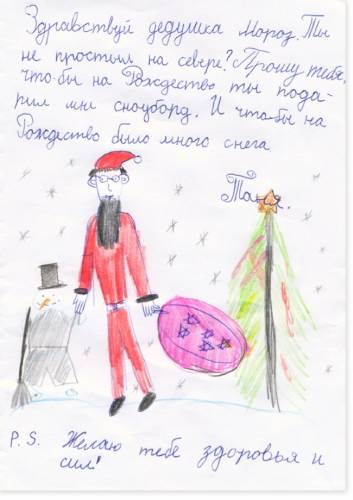 Здравствуй дедушка Мороз. Ты
не простыл на севере? Прошу тебя,
что-бы на Рождество ты пода-
рил мне сноуборд. И что-бы на
Рождество было много снега
Таня.
P.S. Желаю тебе здоровья и
сил!